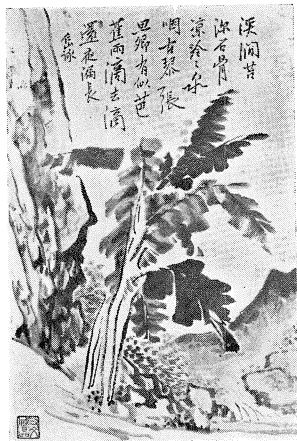 溪澗苔
深石骨
涼泠々水
咽古琴張
思鄉有似芭
蕉雨滴去滴
還夜漏長